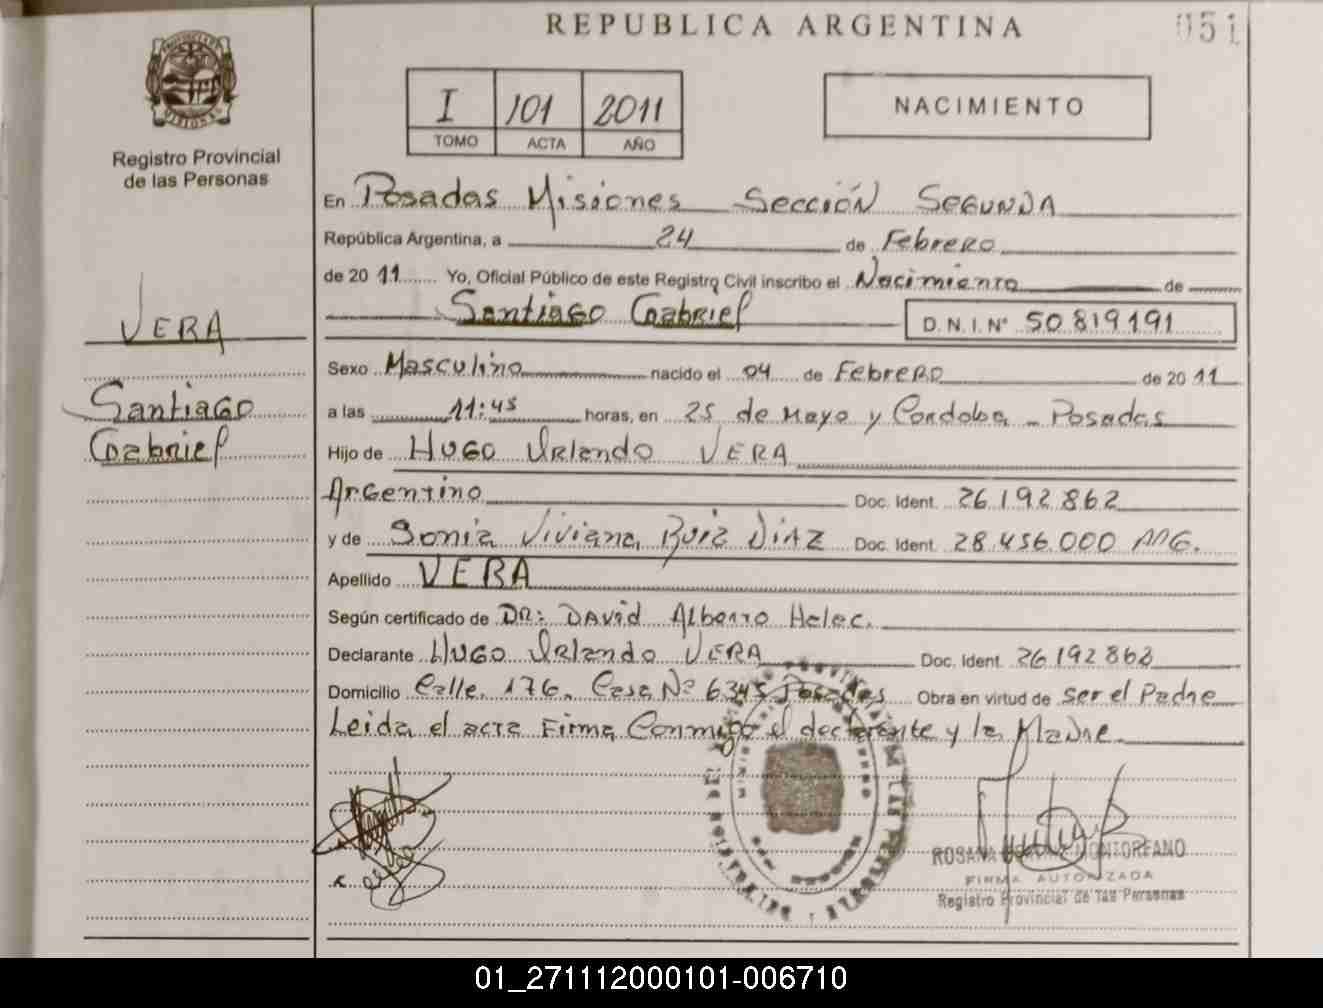 REPUBLICA ARGENTINA
051
I 101 2011
TOMO ACTA AÑO
NACIMIENTO
Registro Provincial
de las Personas
VERA
Santiago
Gabriel
En Posadas Misiones Sección Segunda
República Argentina, a 24 de Febrero
de 2011 Yo, Oficial Público de este Registro Civil inscribo el Nacimiento de
Santiago Gabriel D.N.I.Nº 50819191
Sexo Masculino nacido el 04 de Febrero de 2011
a las 11:45 horas, en 25 de Mayo y Cordoba - Posadas
Hijo de Hugo Orlando VERA
Argentino Doc. Ident. 26.192.862
y de Sonia Viviana Ruiz Diaz Doc. Ident. 28.456.000 ARG.
Apellido VERA
Según certificado de DR: David Alberto Helec.
Declarante Hugo Orlando VERA Doc. Ident. 26192862
Domicilio Calle 176. Casa Nº 6345 Posadas Obra en virtud de ser el Padre
Leida el acta Firma Conmigo el declarante y la Madre.
ROSANA MONTORFANO
FIRMA AUTORIZADA
Registro Provincial de las Personas
01_271112000101-006710